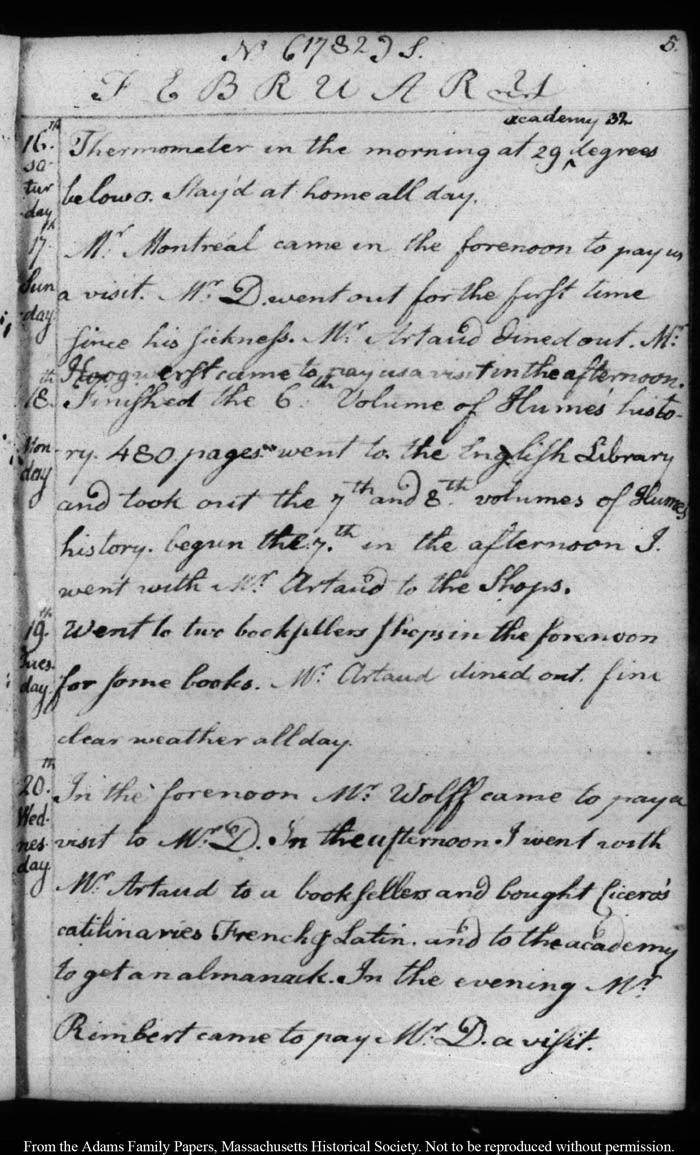 N. (1782) S. 5.
FEBRUARY
academy 32
16.th Satur day Thermometer in the morning at 29 ^ degrees
below 0. Stay'd at home all day.
17.th Sun day Mr. Montréal came in the forenoon to pay us
a visit. Mr. D. went out for the first time
since his sickness. Mr. Artaud dined out. Mr.
Hoogwerft came to pay us a visit in the afternoon.
18.th Mon day Finished the 6.th Volume of Hume's histo-
ry. 480 pages. went to the English Library
and took out the 7th and 8.th volumes of Humes
history. begun the 7.th in the afternoon I.
went with Mr. Artaud to the Shops.
19.th Tues day Went to two booksellers shops in the forenoon
for some books. Mr. Artaud dined out. fine
clear weather all day.
20.th Wed nes day In the forenoon Mr. Wolff came to pay a
visit to Mr. D. In the afternoon I went with
Mr. Artaud to a booksellers and bought Cicero's
catilinaries French & Latin. and to the academy
to get an almanack. In the evening Mr.
Rimbert came to pay Mr. D. a visit.
From the Adams Family Papers, Massachusetts Historical Society. Not to be reproduced without permission.